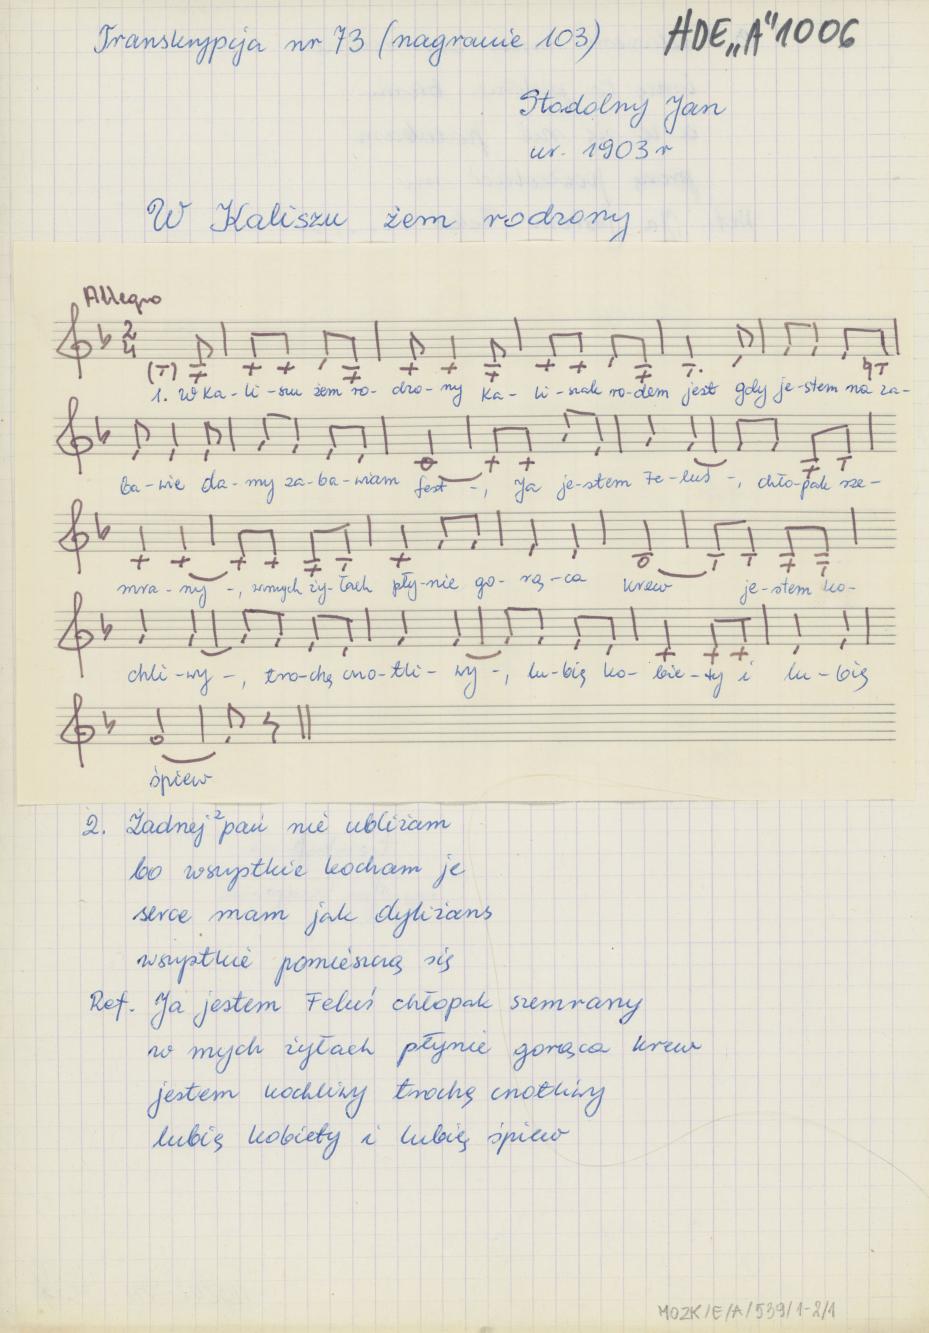 Transkrypcja nr 73 (nagranie 103)
HDE„A"1006
Stodolny Jan
ur. 1903 r
W Kaliszu żem rodzony
Allegro
2
4
(T)
1. W Ka-li-szu żem ro-dzo-ny ka-li-szak ro-dem jest gdy je-stem na za-
ba-wie da-my za-ba-wiam fest -, Ja je-stem Fe-luś -, chło-pak sze-
mra-ny -, wmych ży-łach pły-nie go-rą-ca krew je-stem ko-
chli-wy -, tro-chę cno-tli-wy -, lu-bię ko-bie-ty i lu-bię
śpiew
2. Żadnej 2 pań nie ubliżam
bo wszystkie kocham je
serce mam jak dyliżans
wszystkie pomieszczą się
Ref. Ja jestem Feluś chłopak szemrany
w mych żyłach płynie gorąca krew
jestem kochliwy trochę cnotliwy
lubię kobiety i lubię śpiew
MOZK/E/A/539/1-2/1